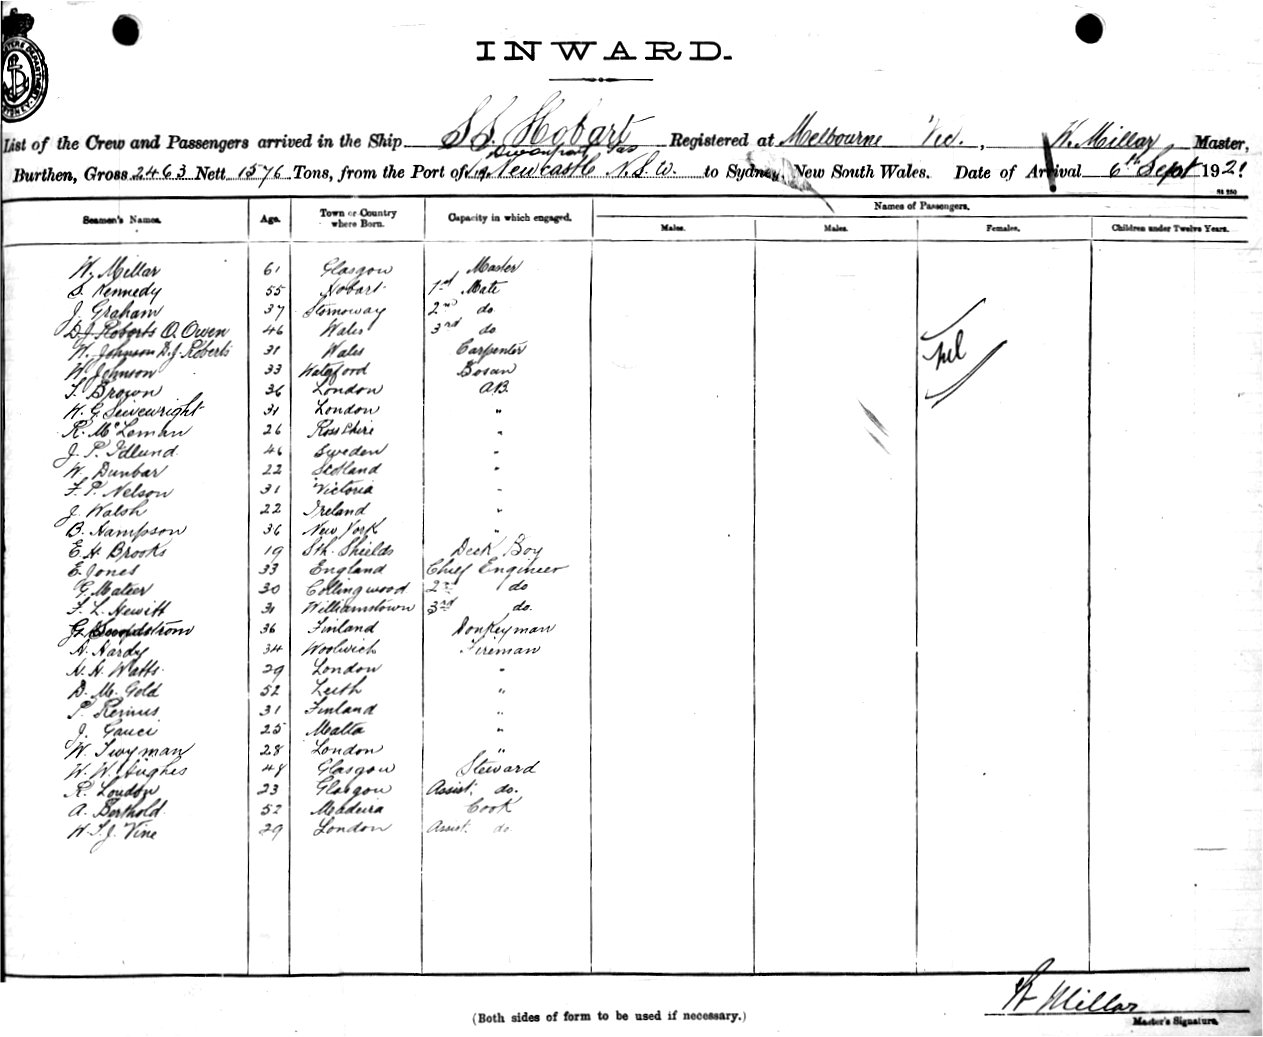 INWARD.
List of the Crew and Passengers arrived in the Ship S.S. Hobart Registered at Melbourne Vic. , W. Millar Master,
Devonport Tas
Burthen, Gross 2463 Nett 1576 Tons, from the Port of via Newcastle N.S.W. to Sydney, New South Wales. Date of Arrival 6th Sept 1921
Seamen's Names. Age. Town or Country where Born. Capacity in which engaged. Names of Passengers.
Males. Males. Females. Children under Twelve Years.
W. Millar 61 Glasgow Master
S. Kennedy 55 Hobart 1st Mate
J. Graham 37 Stornoway 2nd do
D.J. Roberts O. Owen 46 Wales 3rd do
W. Johnson D.J. Roberts 31 Wales Carpenter
W. Johnson 33 Waterford Bosun
T. Brown 36 London A.B.
K. G. Seivewright 31 London "
R. McLeman 26 Ross Shire "
J. P. Idlund 46 Sweden "
W. Dunbar 22 Scotland "
F. P. Nelson 31 Victoria "
J. Walsh 22 Ireland "
B. Hampson 36 New York "
E. H. Brooks 19 Sth. Shields Deck Boy
E. Jones 33 England Chief Engineer
G. Mateer 30 Collingwood 2nd do
F. L. Hewitt 31 Williamstown 3rd do.
36 Finland Donkeyman
A. Hardy 34 Woolwich Fireman
H. H. Watts 29 London "
D. M. Gold 52 Leith "
P. Remus 31 Finland "
J. Gauci 25 Malta "
W. Twyman 28 London "
W. W. Hughes 48 Glasgow Steward
R. Loudon 23 Glasgow Assist. do.
A. Berthold 52 Madeira Cook
H. T. J. Vine 29 London Assist. do.
Nil
W Millar
Master's Signature.
(Both sides of form to be used if necessary.)